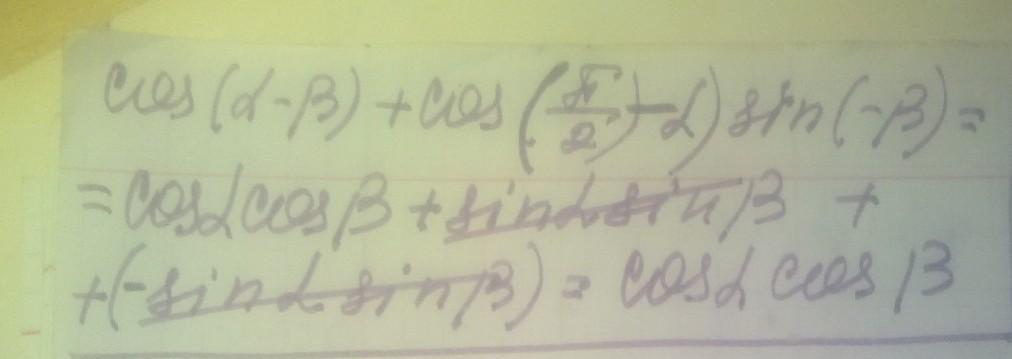 cos(α-β)+cos(π/2)-α)sin(-β)=
=cosαcosβ+sinαsinβ +
+(-sinαsinβ)= cosα cosβ